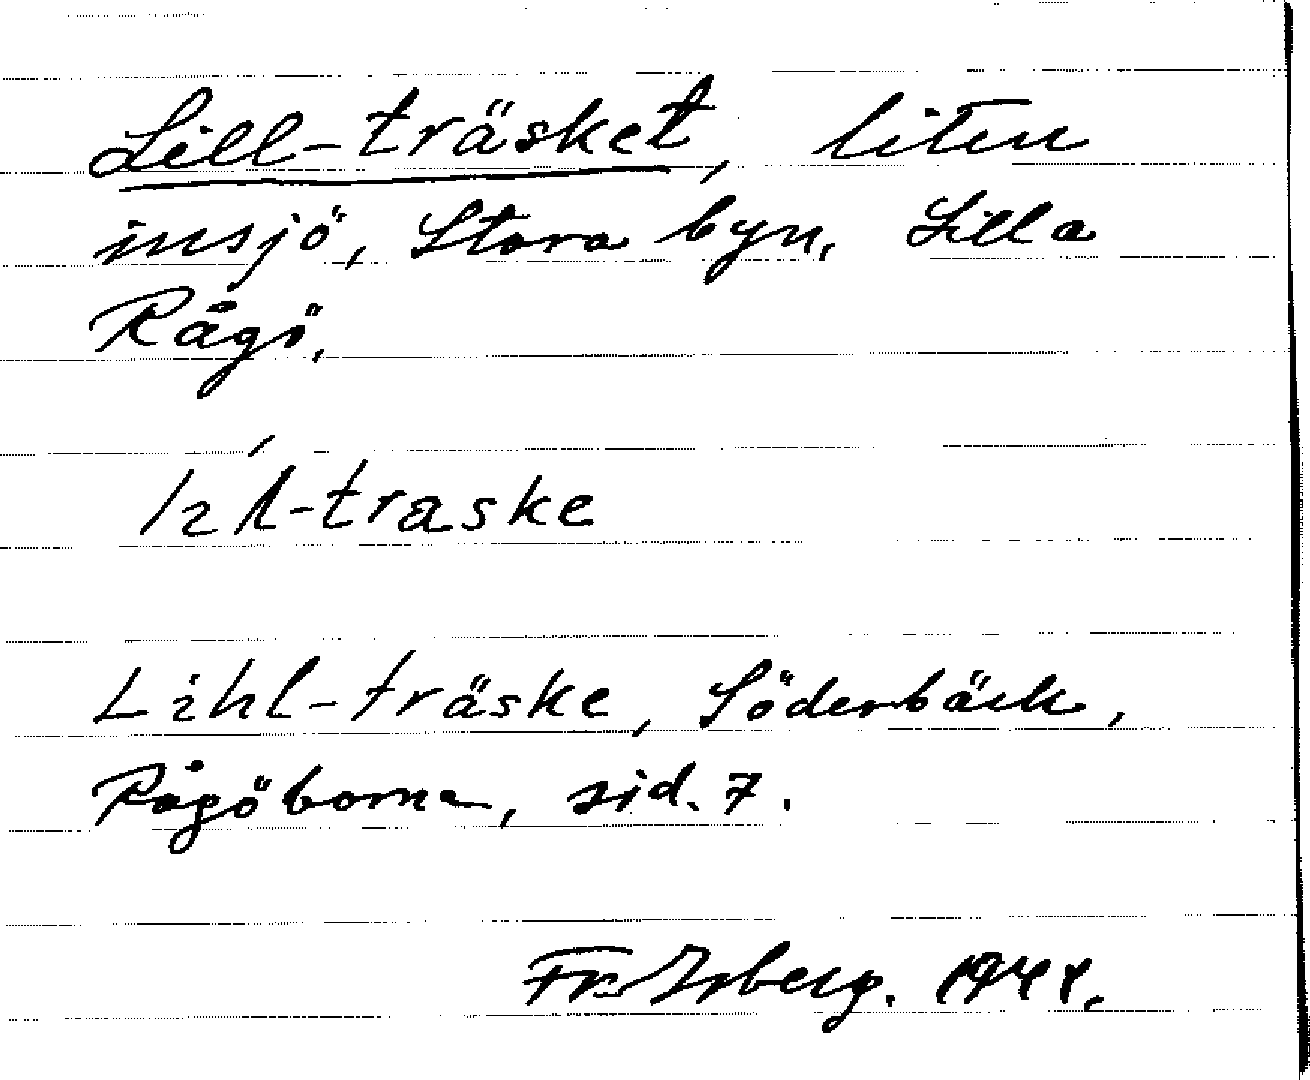 Lill-träsket, liten
insjö, Stora byn, Lilla
Rågö.
-traske
Lihl-träske, Söderbäck,
Rågöborna, sid. 7.
1944.